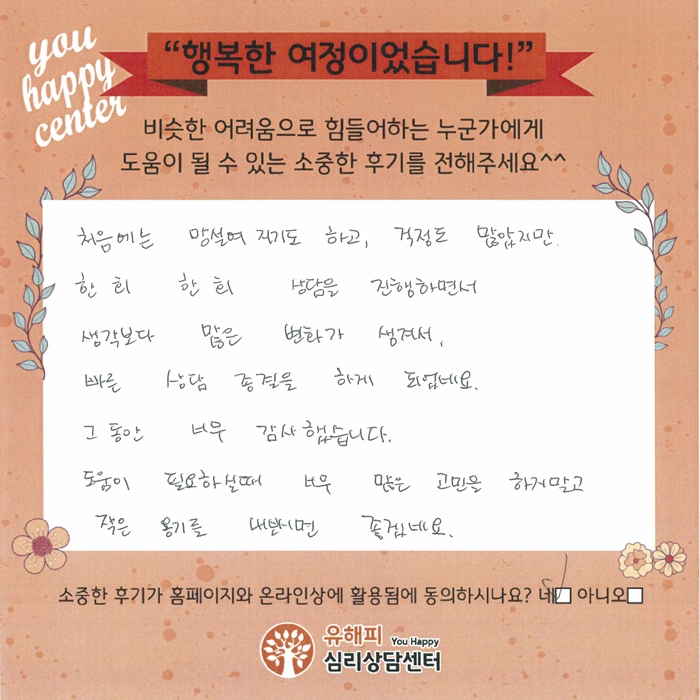 you
happy
center
“행복한 여정이었습니다!”
비슷한 어려움으로 힘들어하는 누군가에게
도움이 될 수 있는 소중한 후기를 전해주세요^^
처음에는 망설여 지기도 하고, 걱정도 많았지만.
한 회 한 회 상담을 진행하면서
생각보다 많은 변화가 생겨서,
빠른 상담 종결을 하게 되었네요.
그 동안 너무 감사했습니다.
도움이 필요하실때 너무 많은 고민을 하지말고
작은 용기를 내보시면 좋겠네요.
소중한 후기가 홈페이지와 온라인상에 활용됨에 동의하시나요? 네 아니오
유해피 You Happy
심리상담센터